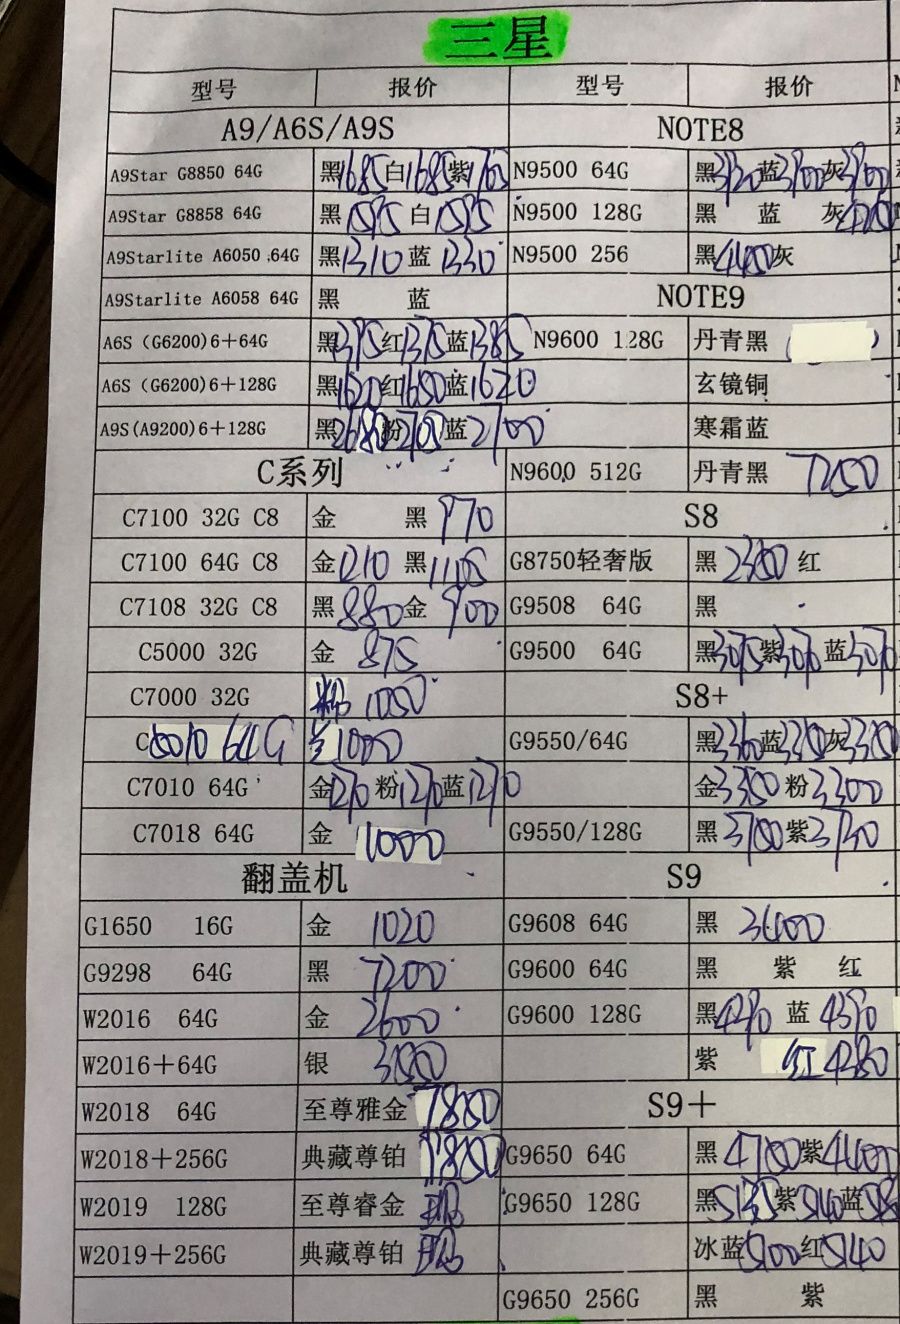 三星
型号 报价 型号 报价
A9/A6S/A9S NOTE8
A9Star G8850 64G 黑1685白1685紫1705 N9500 64G 黑 蓝 灰
A9Star G8858 64G 黑1595 白1595 N9500 128G 黑 蓝 灰
A9Starlite A6050 64G 黑1310 蓝1330 N9500 256 黑4450灰
A9Starlite A6058 64G 黑 蓝 NOTE9
A6S (G6200)6+64G 黑1375红1375蓝1385 N9600 128G 丹青黑
A6S (G6200)6+128G 黑1620红1650蓝1620 玄镜铜
A9S(A9200)6+128G 黑2680粉2705蓝2700 寒霜蓝
C系列 N9600 512G 丹青黑 7250
C7100 32G C8 金 黑 970 S8
C7100 64G C8 金1210 黑1105 G8750轻奢版 黑 2350 红
C7108 32G C8 黑880金 900 G9508 64G 黑
C5000 32G 金 875 G9500 64G 黑3075紫3070蓝
C7000 32G 粉 1050 S8+
C5010 64G 金1000 G9550/64G 黑3360蓝3350灰
C7010 64G 金1270粉1270蓝1270 金3350粉3300
C7018 64G 金 1000 G9550/128G 黑3700紫3730
翻盖机 S9
G1650 16G 金 1020 G9608 64G 黑 3600
G9298 64G 黑 7200 G9600 64G 黑 紫 红
W2016 64G 金 2600 G9600 128G 黑4290 蓝4390
W2016+64G 银 紫 红4280
W2018 64G 至尊雅金 7850 S9+
W2018+256G 典藏尊铂 G9650 64G 黑4700紫4400
W2019 128G 至尊睿金 现 G9650 128G 黑5135紫5140蓝
W2019+256G 典藏尊铂 现 冰蓝5100红5140
G9650 256G 黑 紫